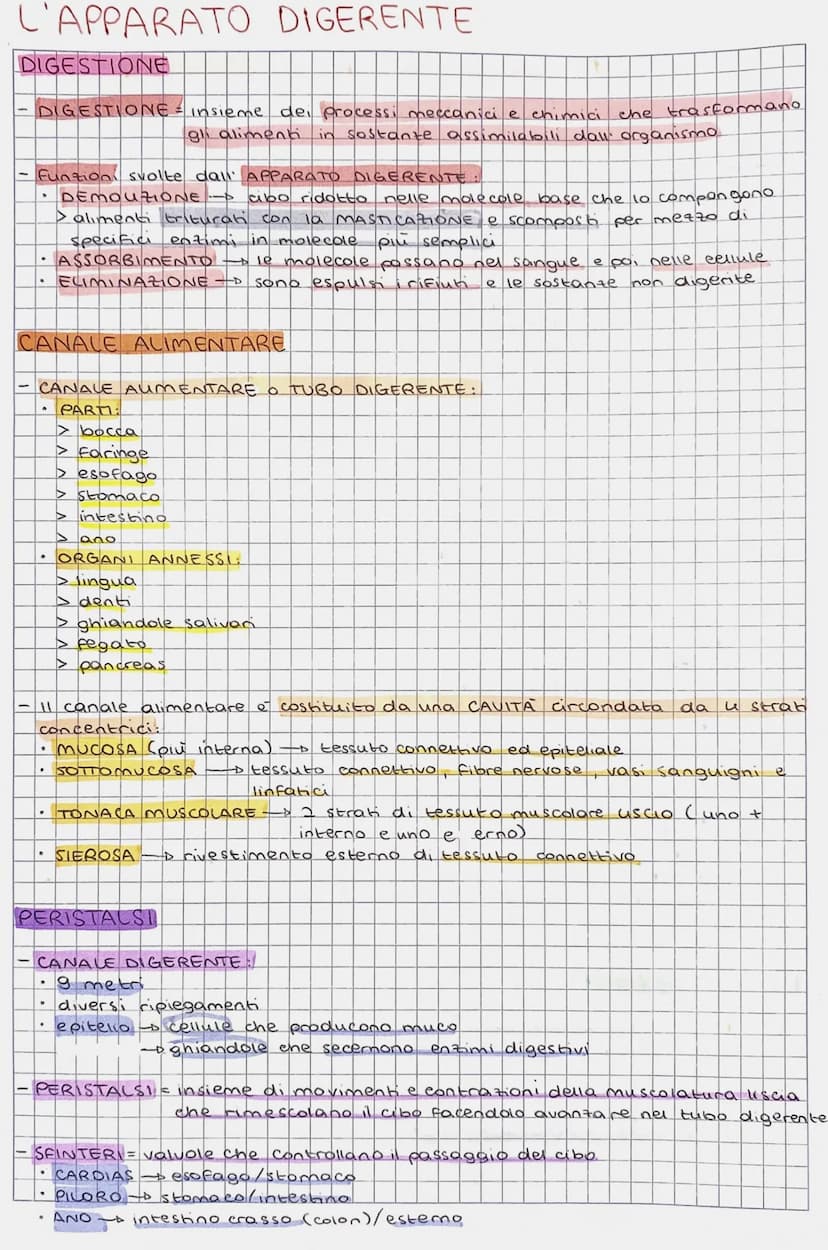 L'APPARATO DIGERENTE
DIGESTIONE
- DIGESTIONE = insieme dei processi meccanici e chimici che trasformano
gli alimenti in sostante assimilabili dall'organismo
- Funzioni svolte dall'APPARATO DIGERENTE:
• DEMOLIZIONE → cibo ridotto nelle molecole base che lo compongono
> alimenti triturati con la MASTICAZIONE e scomposti per mezzo di
specifici enzimi in molecole più semplici
• ASSORBIMENTO → le molecole passano nel sangue e poi nelle cellule
• ELIMINAZIONE → sono espulsi i rifiuti e le sostante non digerite
CANALE ALIMENTARE
- CANALE ALIMENTARE o TUBO DIGERENTE:
• PARTI:
> bocca
> faringe
> esofago
> stomaco
> intestino
> ano
• ORGANI ANNESSI:
> lingua
> denti
> ghiandole salivari
> fegato
> pancreas
- Il canale alimentare è costituito da una CAVITÀ circondata da 4 strati
concentrici:
• MUCOSA (più interna) → tessuto connettivo ed epiteliale
• SOTTOMUCOSA → tessuto connettivo, fibre nervose, vasi sanguigni e
linfatici
• TONACA MUSCOLARE → 2 strati di tessuto muscolare liscio (uno +
interno e uno e erno)
• SIEROSA → rivestimento esterno di tessuto connettivo
PERISTALSI
- CANALE DIGERENTE:
• 9 metri
• diversi ripiegamenti
• epitelio → cellule che producono muco
→ ghiandole che secernono enzimi digestivi
- PERISTALSI = insieme di movimenti e contrazioni della muscolatura liscia
che rimescolano il cibo facendolo avanzare nel tubo digerente
- SFINTERI = valvole che controllano il passaggio del cibo
• CARDIAS → esofago/stomaco
• PILORO → stomaco/intestino
• ANO → intestino crasso (colon)/esterno